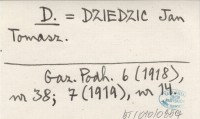 D. = DZIEDZIC Jan
Tomasz.
Gaz. Podh. 6 (1918),
nr 38; 7 (1919), nr 14.